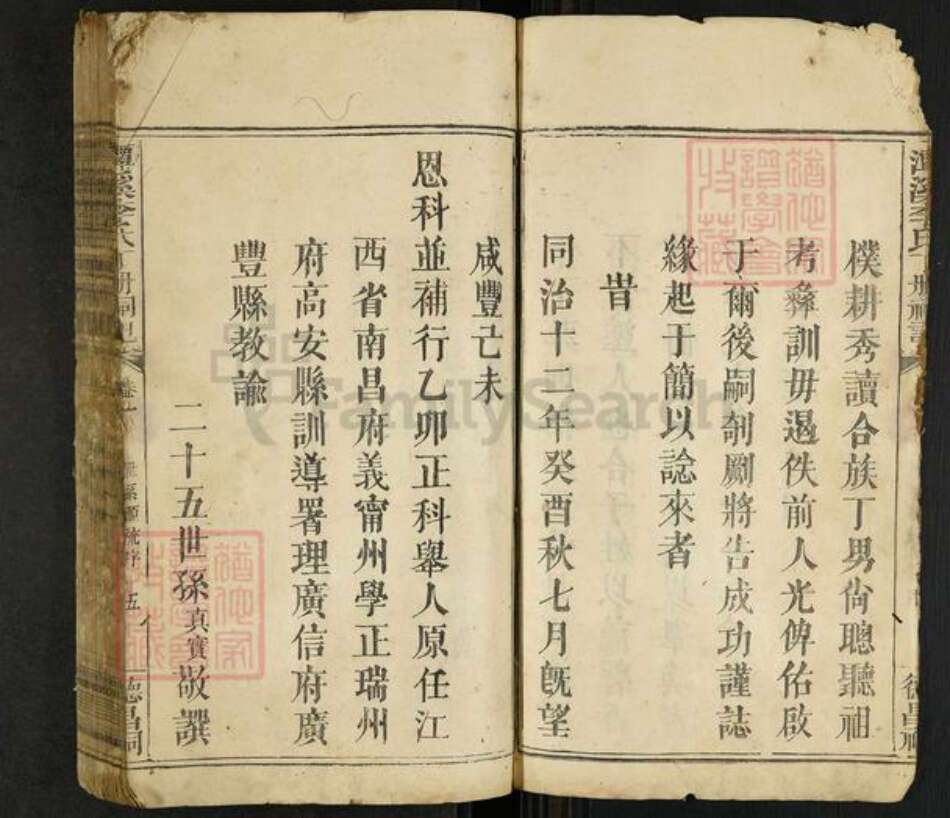 樸耕秀讀合族丁男尙聰聽祖
考彝訓毋遏佚前人光俾佑啟
于爾後嗣剞劂將告成功謹誌
緣起于簡以諗來者
旹
同治十二年癸酉秋七月旣望
咸豐己未
恩科並補行乙卯正科舉人原任江
西省南昌府義甯州學正瑞州
府高安縣訓導署理廣信府廣
豐縣教諭
二十五世孫真寶敬譔
五
德昌祠
FamilySearch